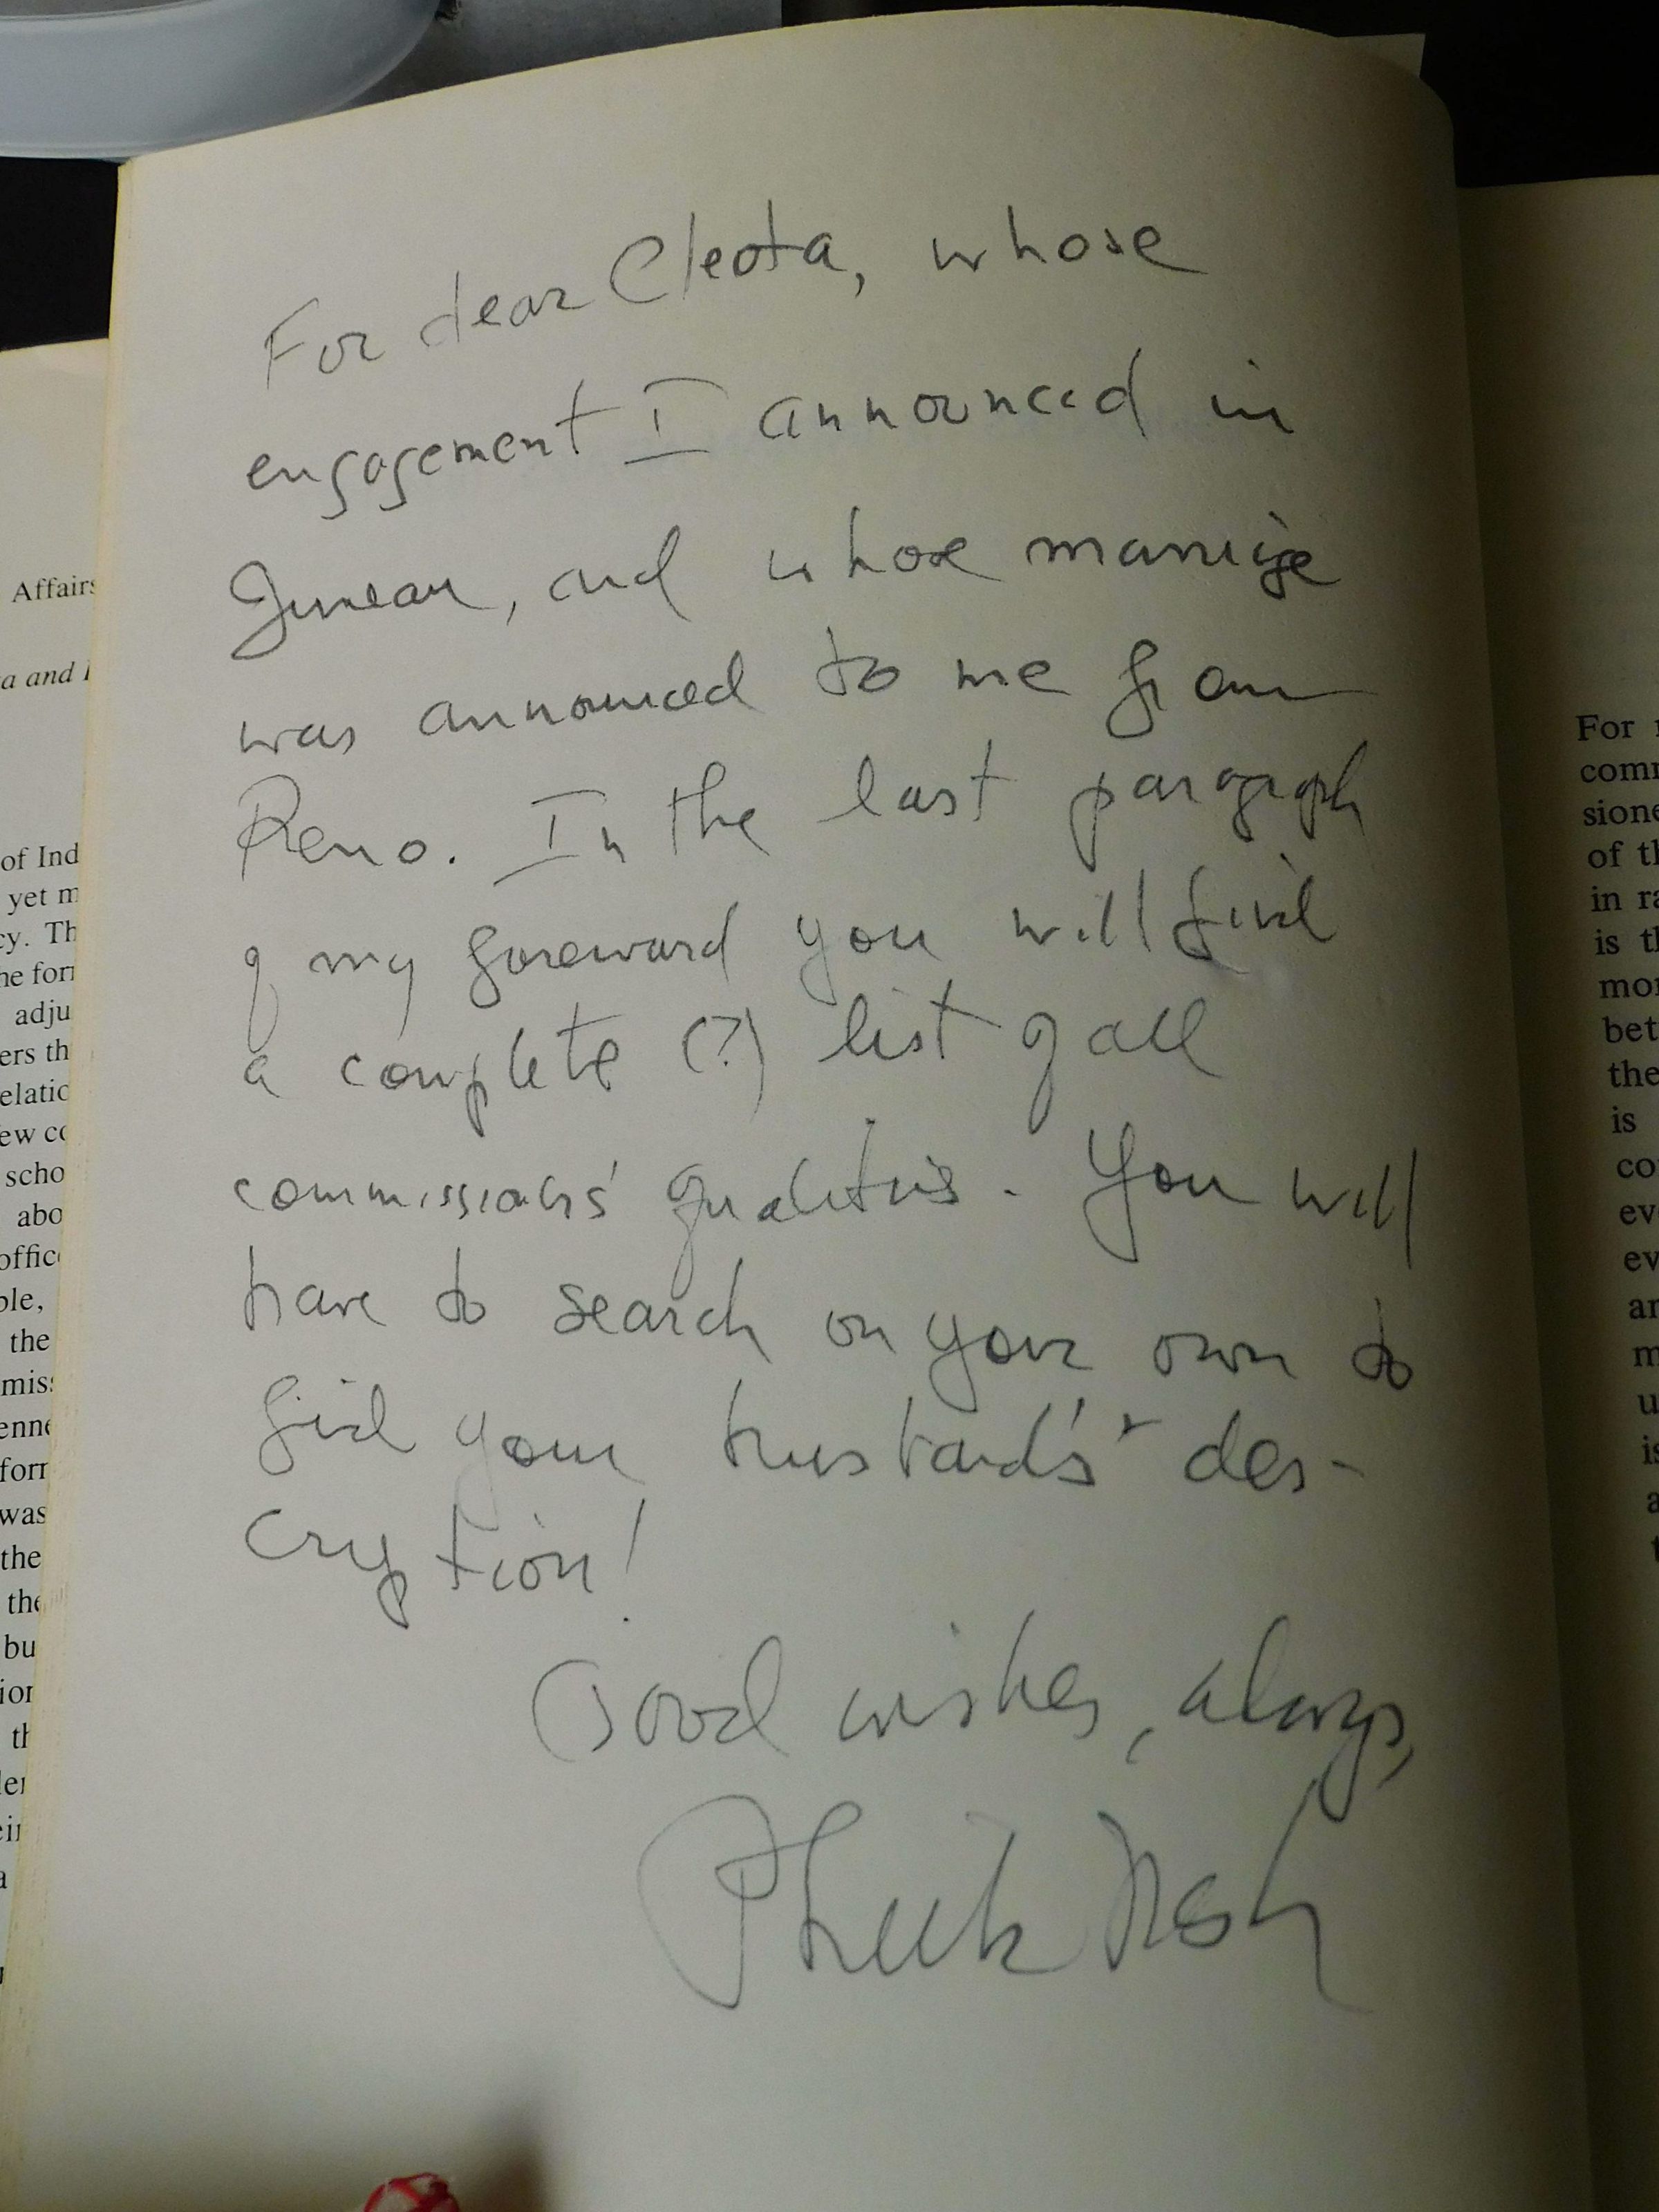 For dear Cleota, whose
engagement I announced in
Juneau, and whose marriage
was announced to me from
Reno. In the last paragraph
of my foreword you will find
a complete (?) list of all
commissioners' qualities. You will
have to search on your own to
find your husband's des-
cryption!
Good wishes, always,
Nash
Affairs
a and
of Ind
yet m
cy. Th
he for
adju
ers th
elatio
ew co
scho
abo
offic
ble,
the
miss
enne
for
was
the
the
bu
ion
th
For
com
sione
of th
in ra
is th
mor
bet
the
is
co
ev
ev
an
m
u
is
a
t